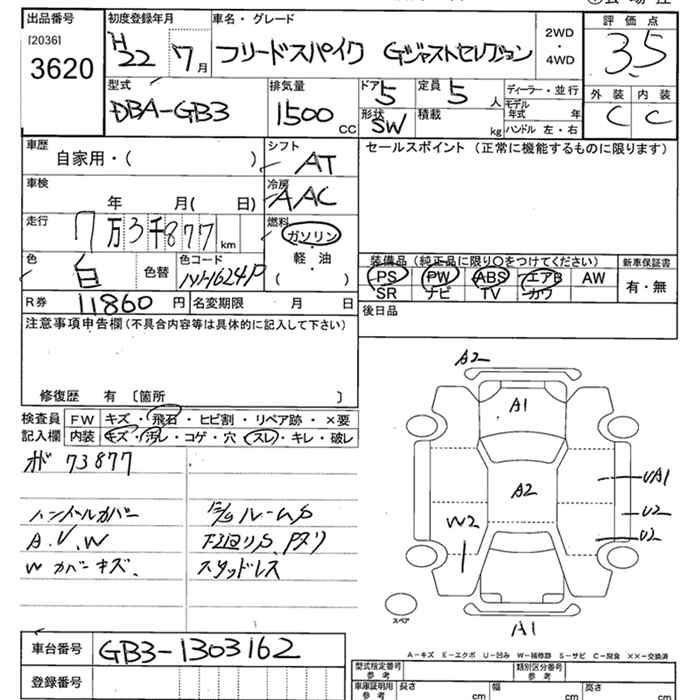 出品番号 初度登録年月 車名・グレード 2WD・4WD 評価点
[2036] 3620 H22 7月 フリードスパイク Gジャストセレクション 3.5
型式 排気量 ドア 5 定員 5人 ディーラー・並行 外装 内装
DBA-GB3 1500 CC 形状 SW 積載 kg モデル年式 年 C C
ハンドル 左・右
車歴 シフト セールスポイント (正常に機能するものに限ります)
自家用・( ) AT
車検 冷房
年 月( 日) AAC
走行 燃料
7万3千877 km ガソリン・軽油 ( )
色 白 色替 色コード NH-1624P
装備品 (純正品に限り○をつけてください) 新車保証書
PS PW ABS エアB AW 有・無
SR ナビ TV カワ
R券 11860円 名変期限 月 日
後日品
注意事項申告欄 (不具合内容等は具体的に記入して下さい)
修復歴 有 〔箇所 〕
検査員 FW キズ・飛石・ヒビ割・リペア跡・×要
記入欄 内装 キズ・汚レ・コゲ・穴・スレ・キレ・破レ
73877
ハンドルカバー ルーム
A.V.W 下廻りS、Pヌリ
W カバーキズ、 スタッドレス
A2
A1
UA1
A2
U2
W2
U2
スペア
A1
A-キズ E-エクボ U-凹み W-補修跡 S-サビ C-腐食 ××-交換済
車台番号 GB3-1303162
登録番号
型式指定番号 参考 類別区分番号 参考
車庫証明用 参考 長さ cm 幅 cm 高さ cm